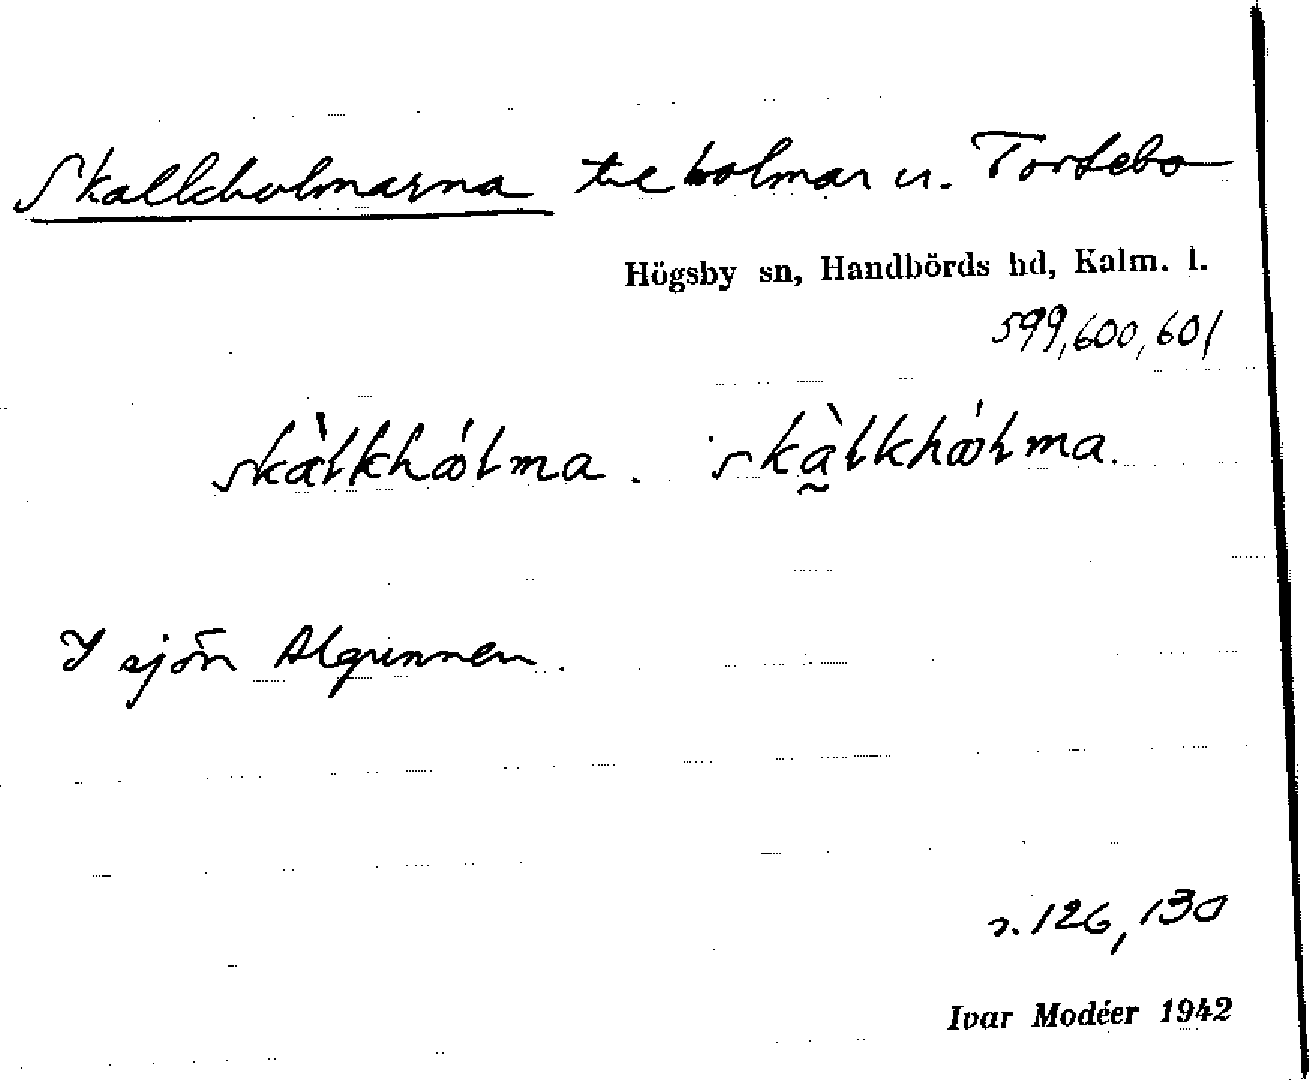 Skalkholmarna tre holmar u. Tortebo
Högsby sn, Handbörds hd, Kalm. l.
599,600,601
skàlkhólma. skàlkhólma.
I sjön Algunnen.
s. 126, 130
Ivar Modéer 1942